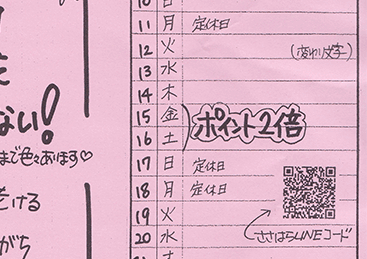 ない!
まで色々あります♡
ける
がち
10 日
11 月 定休日
12 火 (変わり文字)
13 水
14 木
15 金
ポイント2倍
16 土
17 日 定休日
18 月 定休日
19 火
20 水
ささはらLINEコード